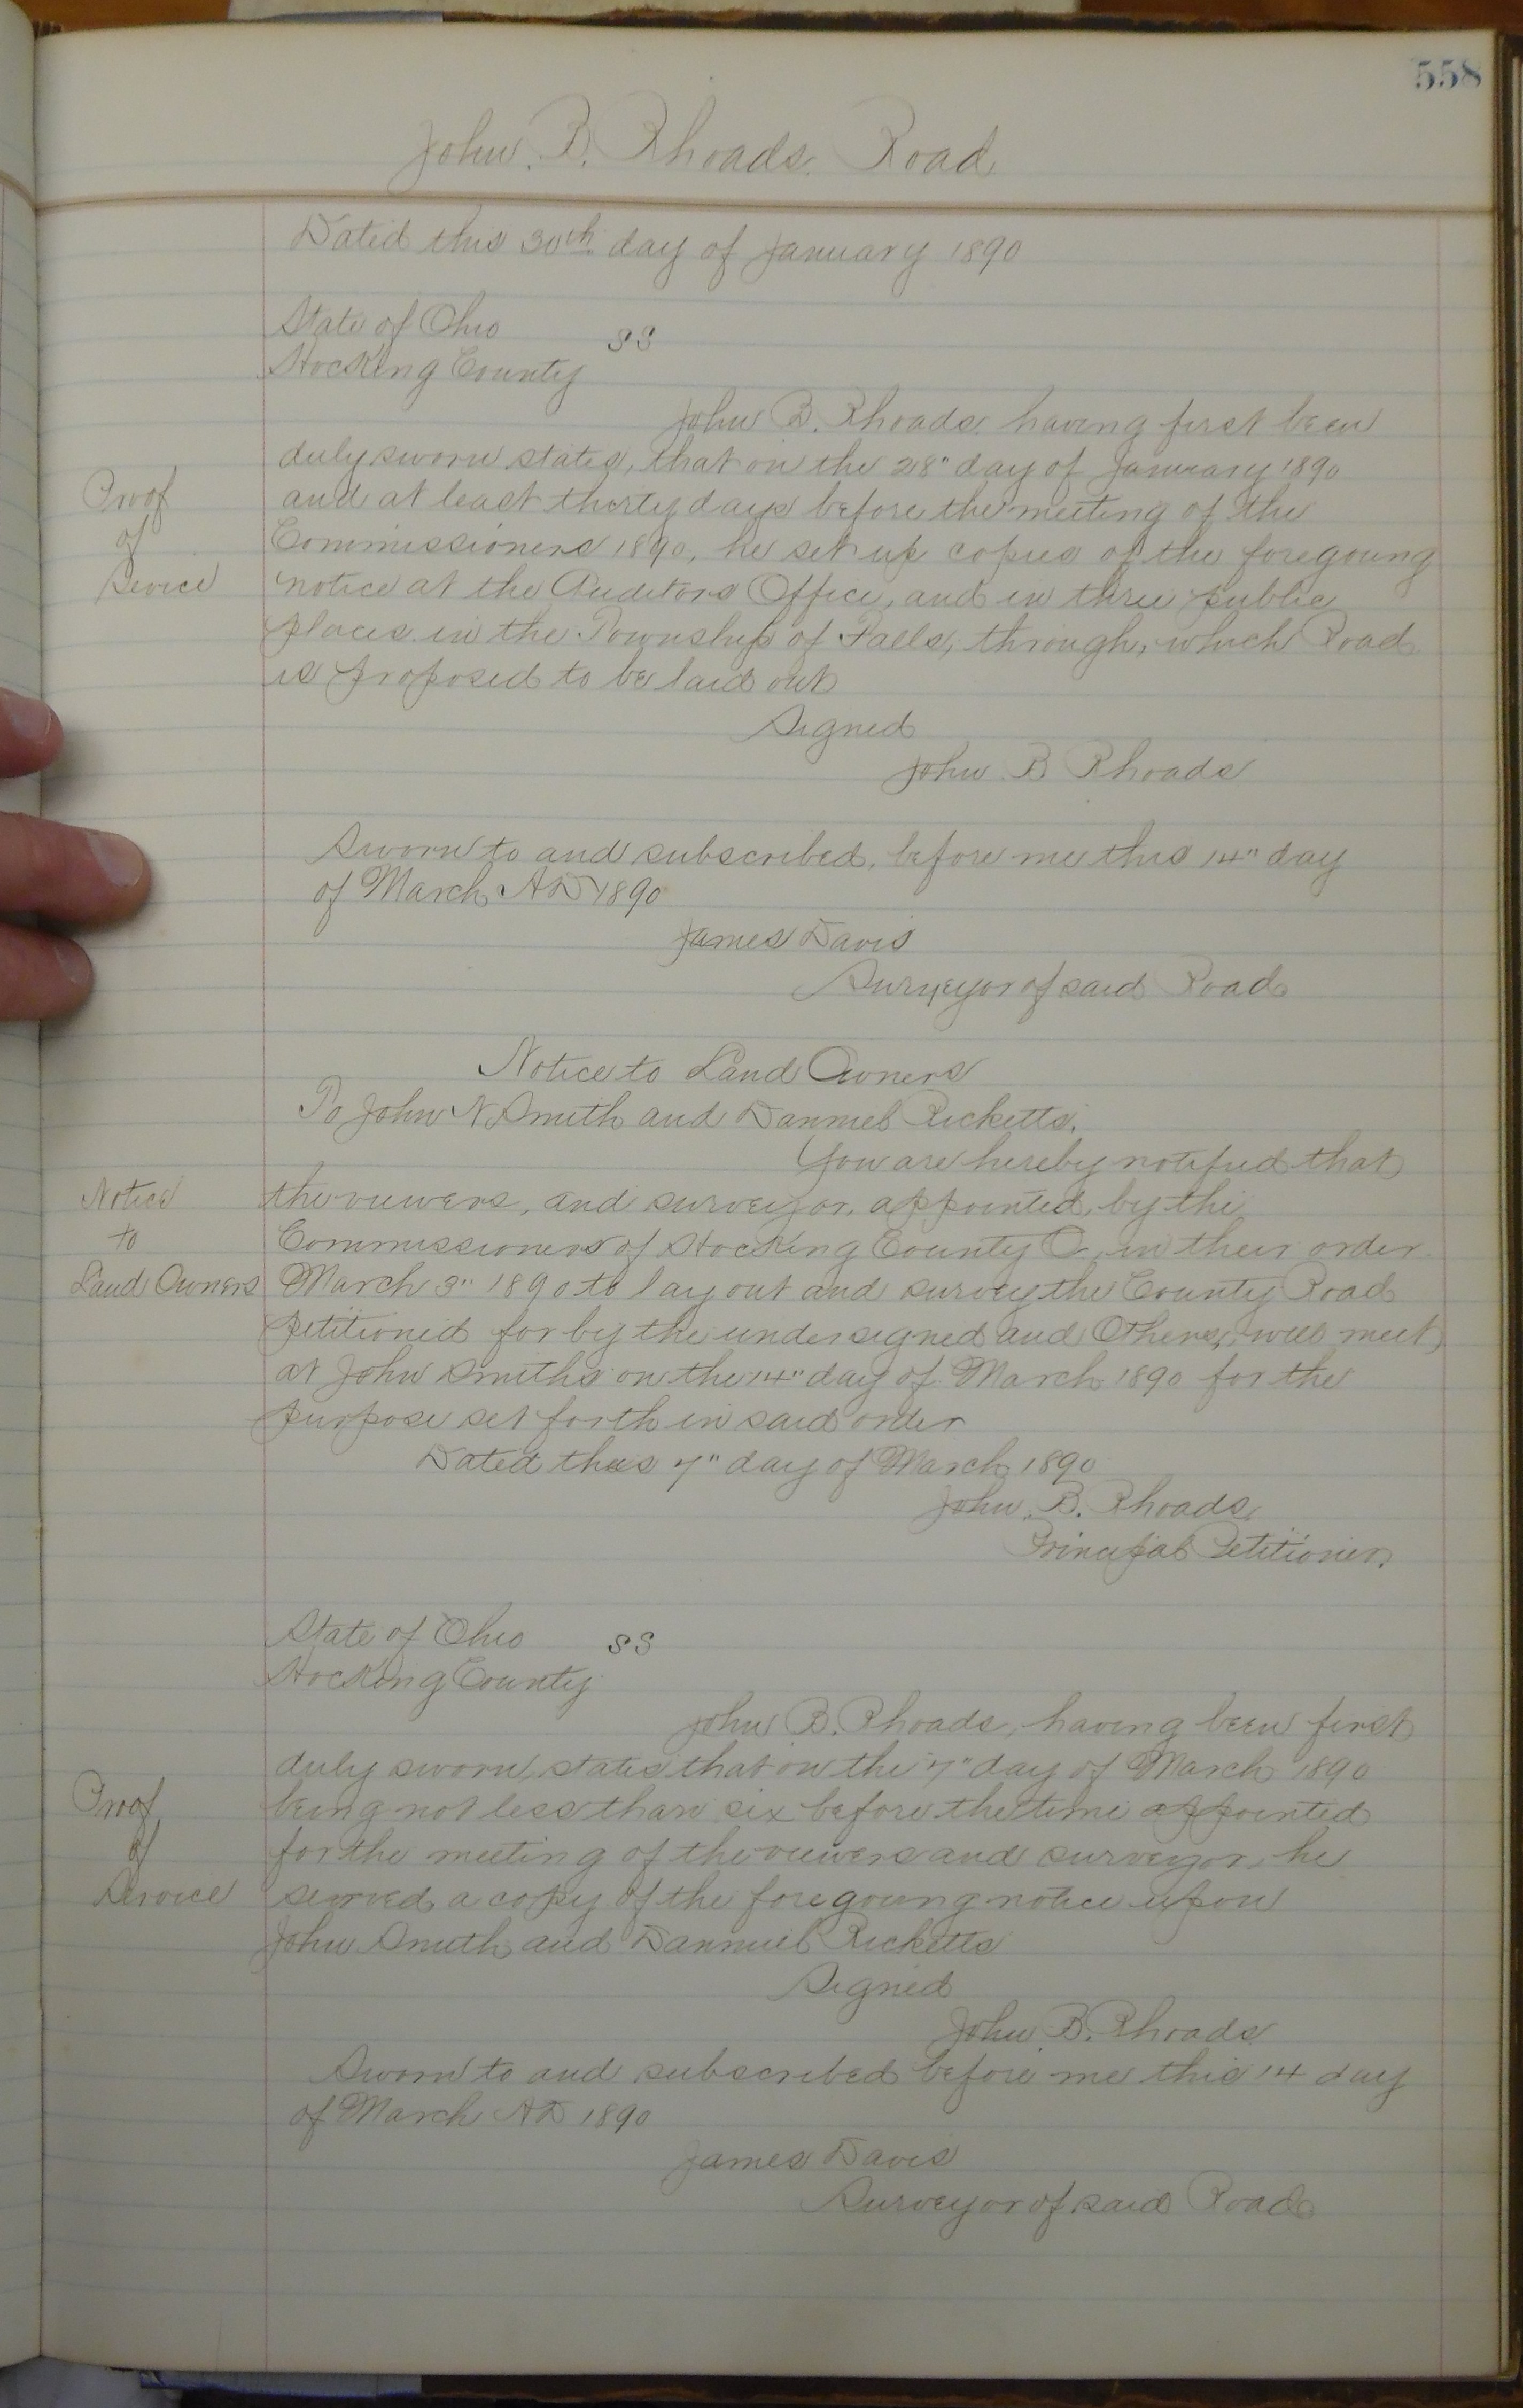 558
John. B. Rhoads. Road
Dated this 30th day of January 1890
State of Ohio
SS
Hocking County
John B. Rhoads. having first been
duly sworn states, that on the 28" day of January 1890
Proof
of
Sevice
and at least thirty days before the meeting of the
Commissioners 1890, he set up copies of the foregoing
notice at the Auditors Office, and in three public
places in the Township of Falls, through, which Road
is proposed to be laid out
Signed
John B Rhoads
Sworn to and subscribed, before me this 14" day
of March AD 1890
James Davis
Surveyor of said Road
Notice to Land Owners
To John N. Smith and Danniel Ricketts.
You are hereby notified that
Notice
to
Land Owners
the viewers, and surveyor, appointed, by the
Commissioners of Hocking County O, in their order
March 3" 1890 to lay out and survey the County Road
petitioned for by the undersigned and Others, will meet
at John Smiths on the 14" day of March 1890 for the
purpose set forth in said order
Dated this 7" day of March 1890
John. B. Rhoads.
Principal Petitioner.
State of Ohio
SS
Hocking County
John B. Rhoads, having been first
duly sworn, states that on the 7" day of March 1890
Proof
of
Service
being not less than six before the time appointed
for the meeting of the viewers and surveyor, he
served a copy of the foregoing notice upon
John Smith and Danniel Ricketts
Signed
John. B. Rhoads
Sworn to and subscribed before me this 14 day
of March AD 1890
James Davis
Surveyor of said Road